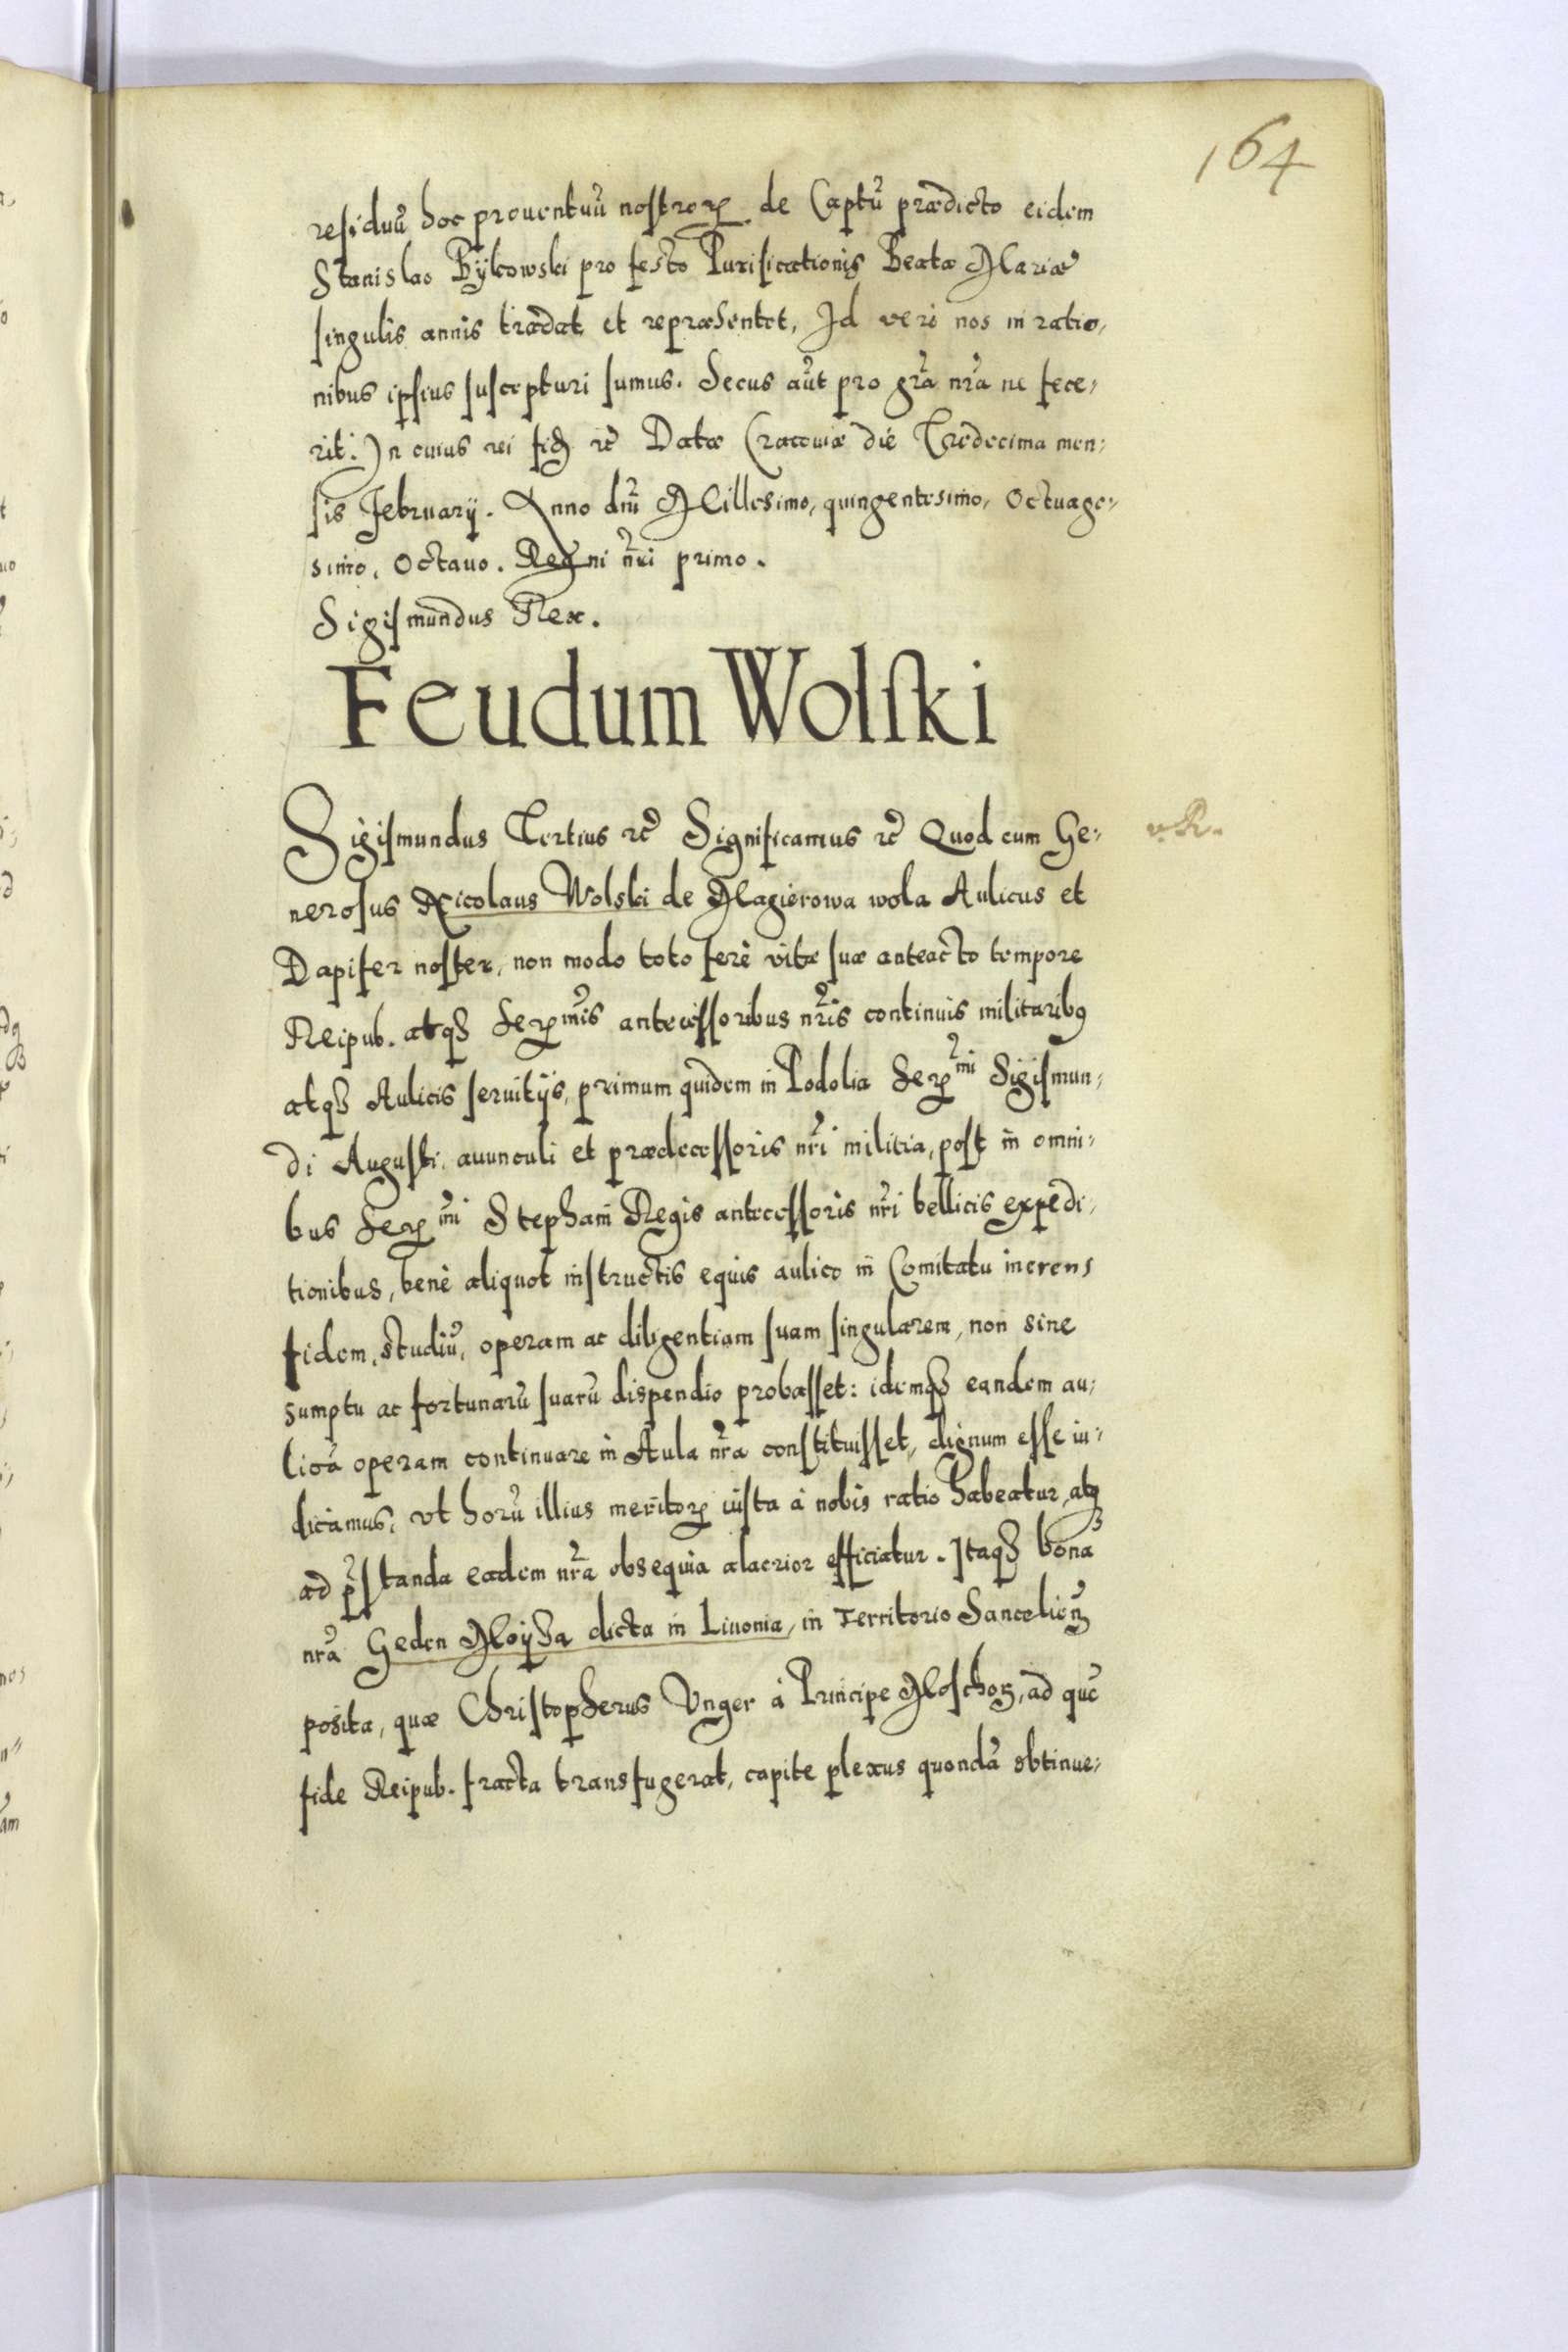 164
residuũ hoc prouentuũ nostrorꝝ de Captũ prædicto eidem
Stanislao Bÿkowski pro festo Purificationis Beatæ Mariæ
singulis annis trædat et repræsentet, Id verò nos in ratio,
nibus ipsius suscepturi sumus. Secus aũt pro gr̃a nr̃a ne fece,
rit: In cuius rei fid̃ etc̃ Datæ Cracouiæ die Tredecima men,
sis February. Anno dnĩ Millesimo, quingentesimo, Octuage,
simo, Octauo. Regni nr̃i primo.
Sigismundus Rex.
Feudum Wolſki
Sigismundus Tertius etc̃ Significamus etc̃ Quod cum Ge,
nerosus Nicolaus Wolski de Magierowa wola Aulicus et
Dapifer noster, non modo toto ferè vitæ suæ anteacto tempore
Reipub. atqꝫ Serꝝmis antecessoribus nr̃is continuis militaribꝯ
atqꝫ Aulicis seruitijs, primum quidem in Podolia Serꝝmi Sigismun,
di Augusti, auunculi et prædecessoris nr̃i militia, post in omni,
bus Serꝝmi Stephani Regis antecessoris nr̃i bellicis expedi,
tionibus, benè aliquot instructis equis aulico in Comitatu merens
fidem, studiũ, operam ac diligentiam suam singularem, non sine
sumptu ac fortunarũ suarũ dispendio probasset: idemqꝫ eandem au,
licã operam continuare in Aula nr̃a constituisset, dignum esse iu,
dicamus, vt horũ illius meritorꝝ iusta à nobis ratio habeatur, atqꝫ
ad p̃standa eadem nr̃a obsequia alacrior efficiatur. Itaqꝫ bona
nr̃a Geden Moÿsa dicta in Liuonia, in Territorio Sanceliem̃
posita, quæ Christopherus Vnger à Principe Moschoꝝ, ad quẽ
fide Reipub. fracta transfugerat, capite plexus quondã obtinue,